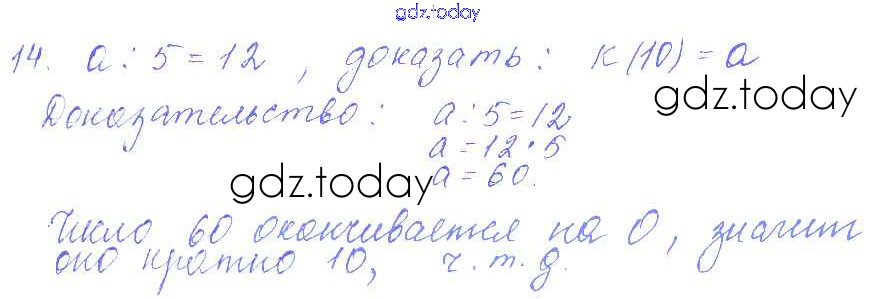 gdz.today
14. a : 5 = 12 , доказать : К(10) = a
Доказательство : a : 5 = 12
gdz.today
a = 12 · 5
gdz.today a = 60.
Число 60 оканчивается на 0, значит
оно кратно 10, ч.т.д.
gdz.today